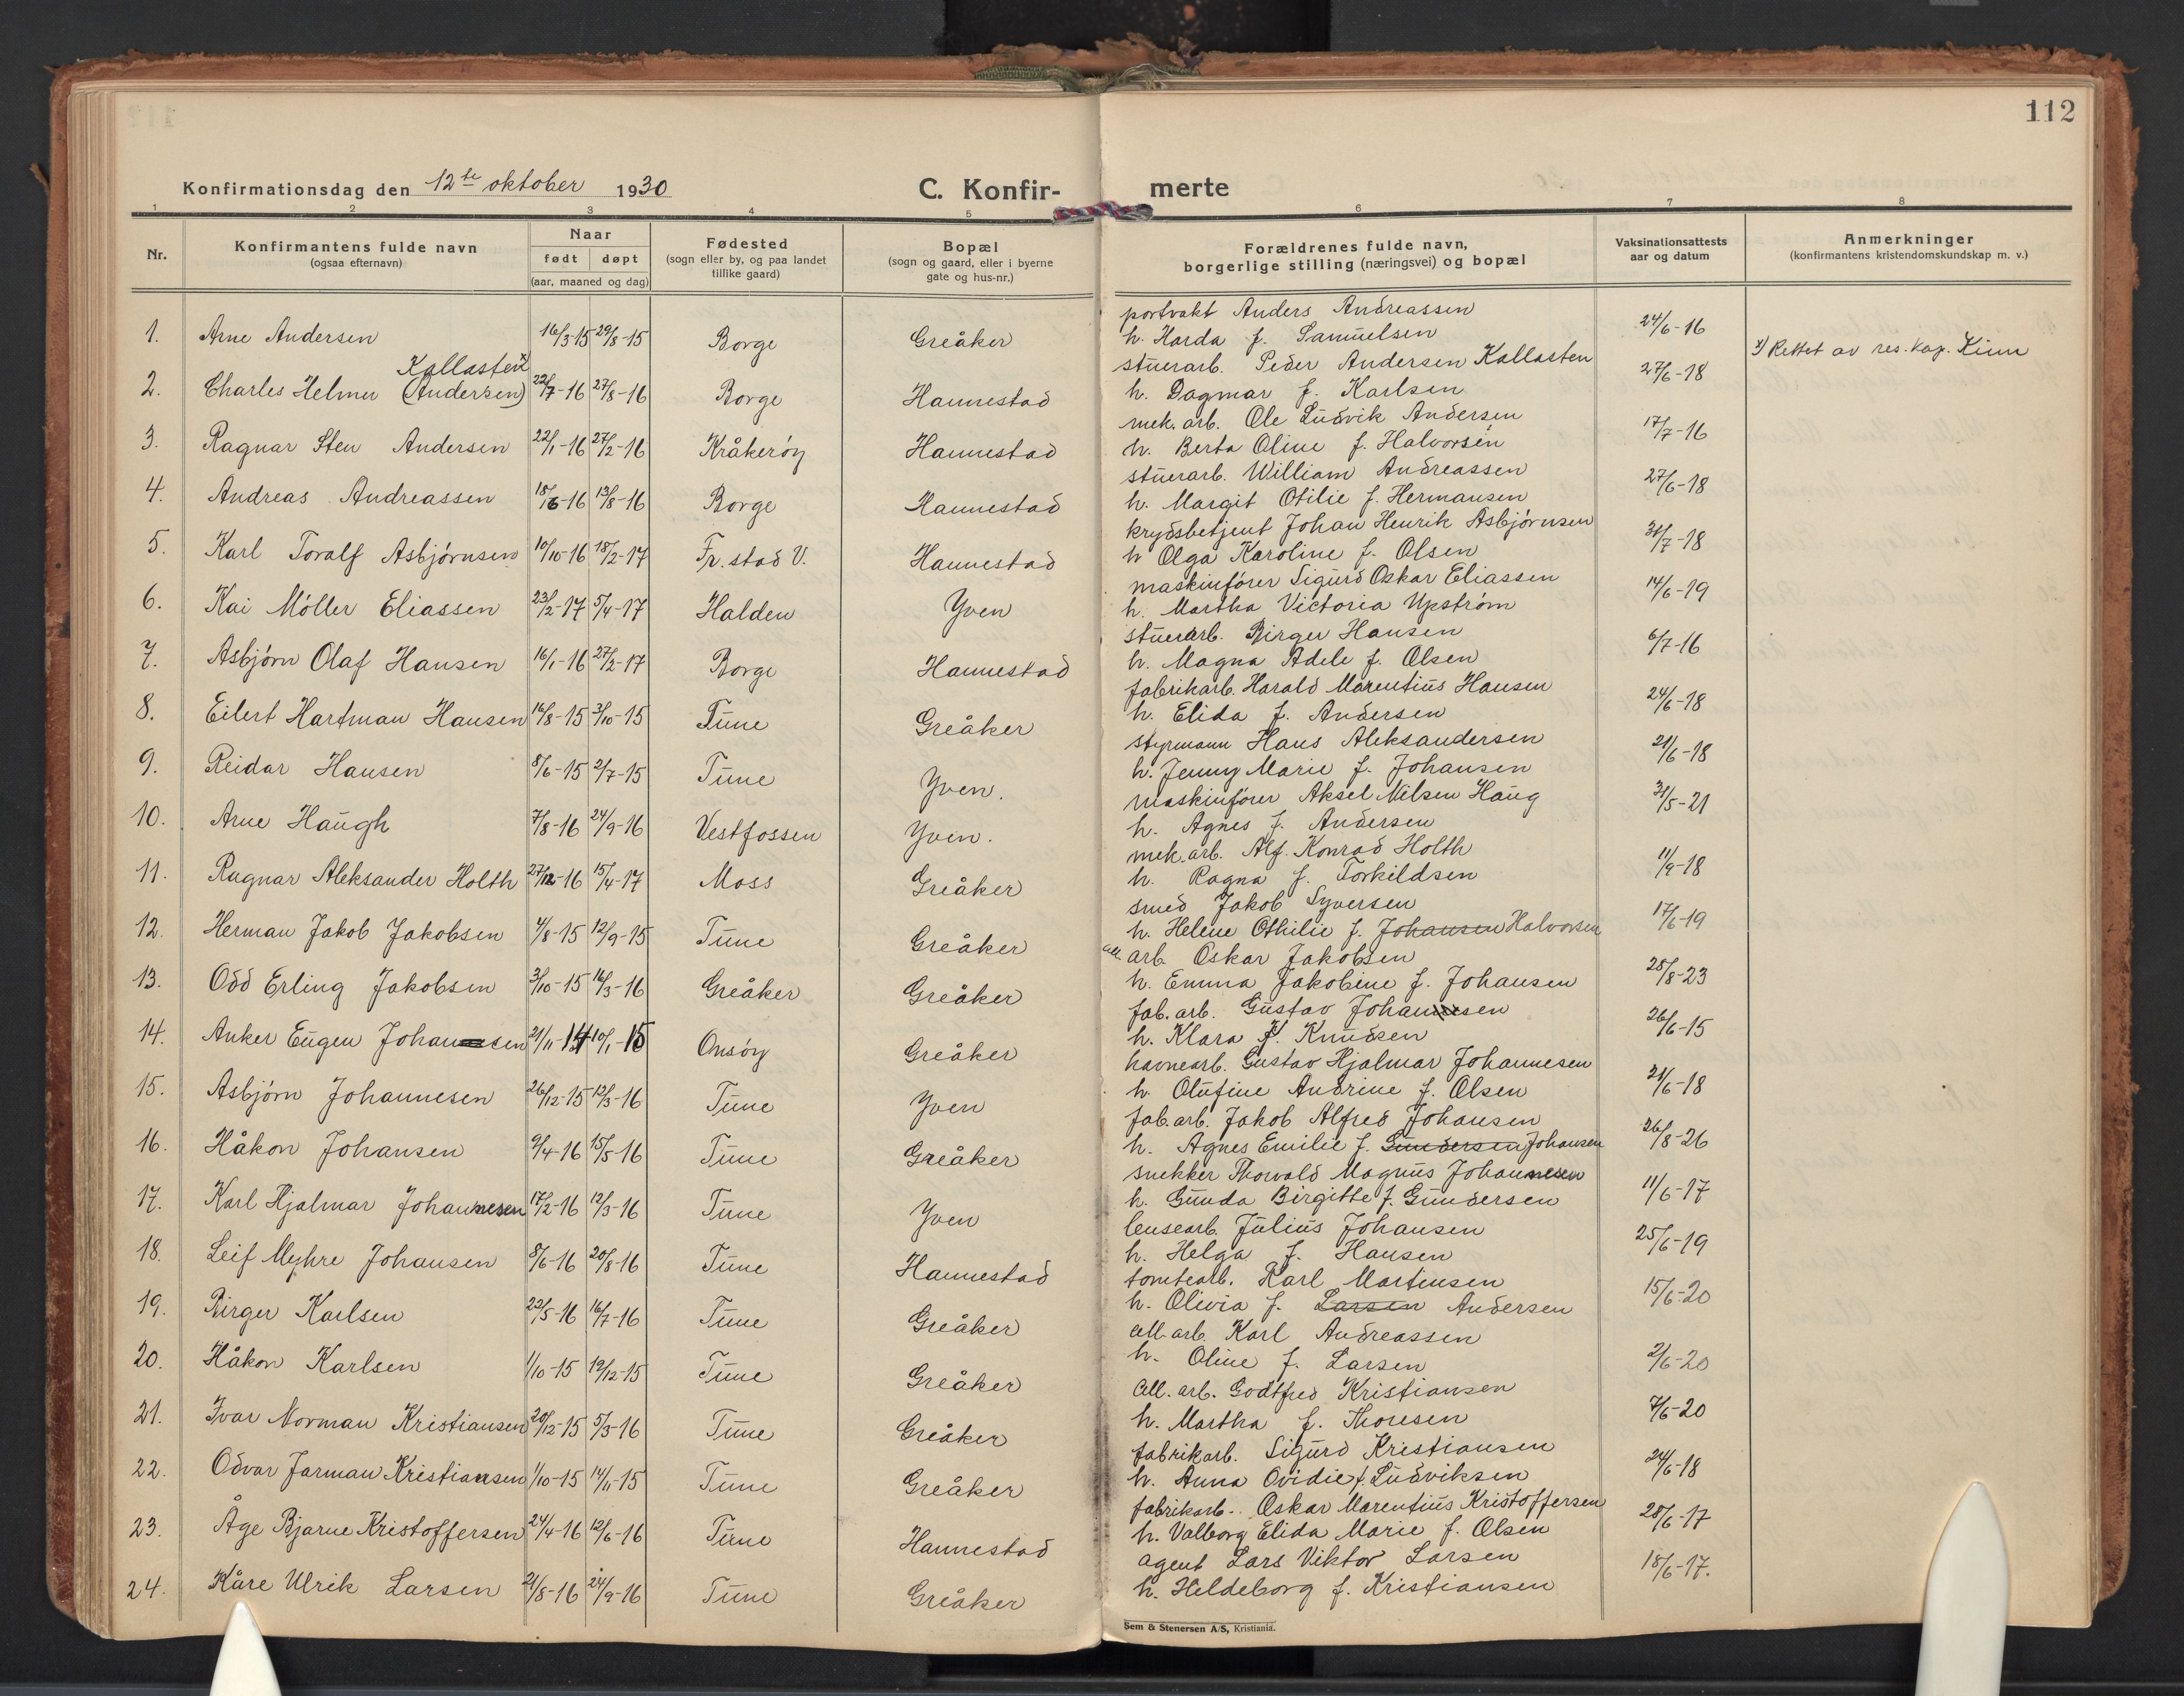 112
Konfirmationsdag den 12te oktober 1930 C. Konfir- merte
1 2 3 4 5 6 7 8
Nr. Konfirmantens fulde navn (ogsaa efternavn) Naar født døpt (aar, maaned og dag) Fødested (sogn eller by, og paa landet tillike gaard) Bopæl (sogn og gaard, eller i byerne gate og hus-nr.) Forældrenes fulde navn, borgerlige stilling (næringsvei) og bopæl Vaksinationsattests aar og datum Anmerkninger (konfirmantens kristendomskundskap m. v.)
1. Arne Andersen 16/3-15 29/8-15 Borge Greåker portvakt Anders Andreassen
h. Harda f. Samuelsen 24/6-16
2. Charles Helmer (Andersen) Kallasten x) 22/7-16 27/8-16 Borge Hannestad stuerarb. Peder Andersen Kallasten
h. Dagmar f. Karlsen 27/6-18 x) Rettet av res. kap. Kinn
3. Ragnar Sten Andersen 22/1-16 27/2-16 Kråkerøy Hannestad mek. arb. Ole Ludvik Andersen
h. Berta Oline f. Halvorsen 17/7-16
4. Andreas Andreassen 18/6-16 13/8-16 Borge Hannestad stuerarb. William Andreassen
h. Margit Otilie f. Hermansen 27/6-18
5. Karl Toralf Asbjørnsen 10/10-16 18/2-17 Fr.stad V. Hannestad krydsbetjent Johan Henrik Asbjørnsen
h Olga Karoline f. Olsen 31/7-18
6. Kai Møller Eliassen 23/2-17 5/4-17 Halden Yven maskinfører Sigurd Oskar Eliassen
h. Martha Victoria Upstrøm 14/6-19
7. Asbjørn Olaf Hansen 16/1-16 27/2-17 Borge Hannestad stuerarb. Birger Hansen
h. Magna Adele f. Olsen 6/7-16
8. Eilert Hartman Hansen 16/8-15 3/10-15 Tune Greåker fabrikarb. Harald Marentius Hansen
h. Elida f. Andersen 24/6-18
9. Reidar Hansen 8/6-15 2/7-15 Tune Yven. styrmann Hans Aleksandersen
h. Jenny Marie f. Johansen 21/6-18
10. Arne Haugh 7/8-16 24/9-16 Vestfossen Yven. maskinfører Aksel Nilsen Haug
h. Agnes f. Andersen 31/5-21
11. Ragnar Aleksander Holth 27/12-16 15/4-17 Moss Greåker mek. arb. Alf Konrad Holth
h. Ragna f. Torkildsen 11/9-18
12. Herman Jakob Jakobsen 4/8-15 12/9-15 Tune Greåker smed Jakob Syversen
h. Helene Othilie f. Johansen Halvorsen 17/6-19
13. Odd Erling Jakobsen 3/10-15 16/3-16 Greåker Greåker all. arb. Oskar Jakobsen
h. Emma Jakobine f. Johansen 28/8-23
14. Anker Eugen Johansen 21/11-14 10/1-15 Onsøy Greåker fab. arb. Gustav Johansen
h. Klara f. Knudsen 26/6-15
15. Asbjørn Johannesen 26/12-15 12/3-16 Tune Yven havnearb. Gustav Hjalmar Johannesen
h. Olufine Andrine f. Olsen 21/6-18
16. Håkon Johansen 9/4-16 15/5-16 Tune Greåker fab. arb. Jakob Alfred Johansen
h. Agnes Emilie f. Gundersen Johansen 26/8-26
17. Karl Hjalmar Johannesen 17/2-16 12/3-16 Tune Yven snekker Thorvald Magnus Johannesen
h. Gunda Birgitte f. Gundersen 11/6-17
18. Leif Myhre Johansen 8/6-16 20/8-16 Tune Hannestad lensearb. Julius Johansen
h. Helga f. Hansen 25/6-19
19. Birger Karlsen 23/5-16 16/7-16 Tune Greåker tomtearb. Karl Martinsen
h. Olivia f. Larsen Andersen 15/6-20
20. Håkon Karlsen 1/10-15 19/12-15 Tune Greåker all. arb. Karl Andreassen
h. Oline f. Larsen 2/6-20
21. Ivar Norman Kristiansen 20/12-15 5/3-16 Tune Greåker all. arb. Godtfred Kristiansen
h. Martha f. Thoresen 7/6-20
22. Odvar Jarman Kristiansen 1/10-15 14/11-15 Tune Greåker fabrikarb. Sigurd Kristiansen
h. Anna Ovidie f. Ludviksen 24/6-18
23. Åge Bjarne Kristoffersen 24/4-16 12/6-16 Tune Hannestad fabrikarb. Oskar Marentius Kristoffersen
h. Valborg Elida Marie f. Olsen 28/6-17
24. Kåre Ulrik Larsen 21/8-16 24/9-16 Tune Greåker agent Lars Viktor Larsen
h. Heldeborg f. Kristiansen 18/6-17.
Sem & Stenersen A/S, Kristiania.